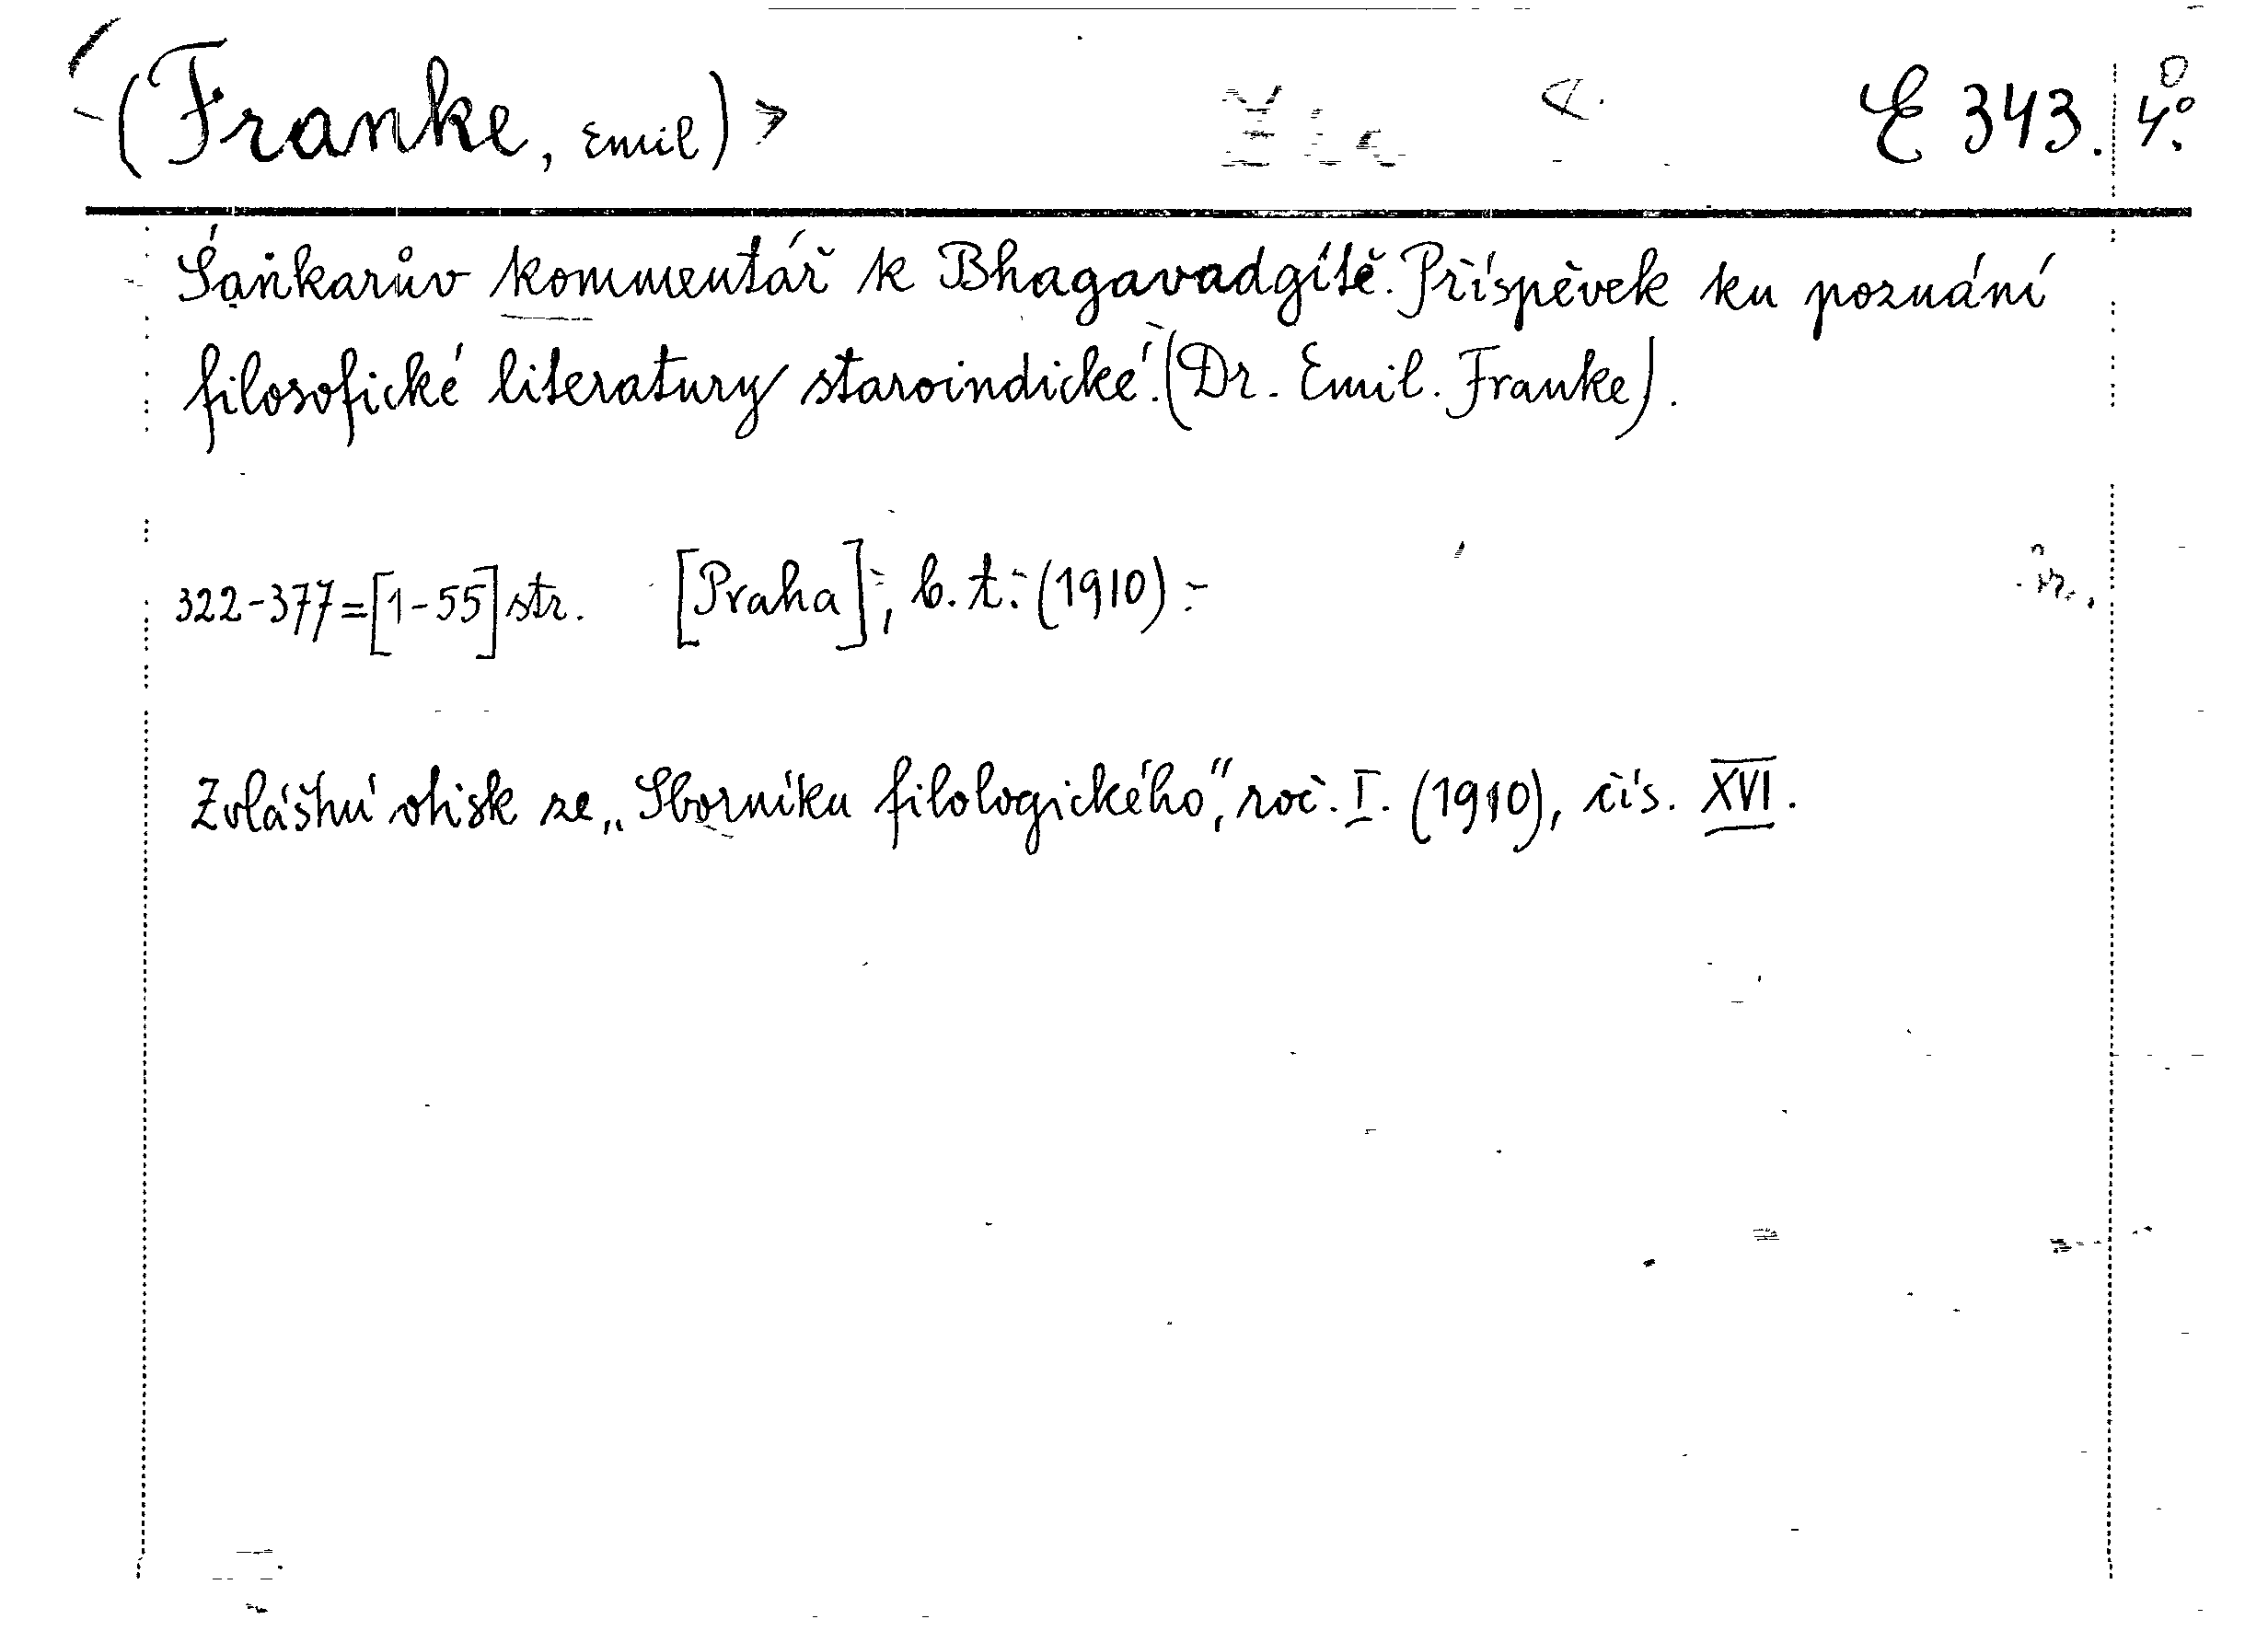 (Franke, Emil) E 343. 4°.
Śaṅkarův kommentář k Bhagavadgítě. Příspěvek ku poznání
filosofické literatury staroindické. (Dr. Emil. Franke).
322-377=[1-55] str. [Praha], b. t. (1910).
Zvláštní otisk ze „Sborníku filologického", roč. I. (1910), čís. XVI.